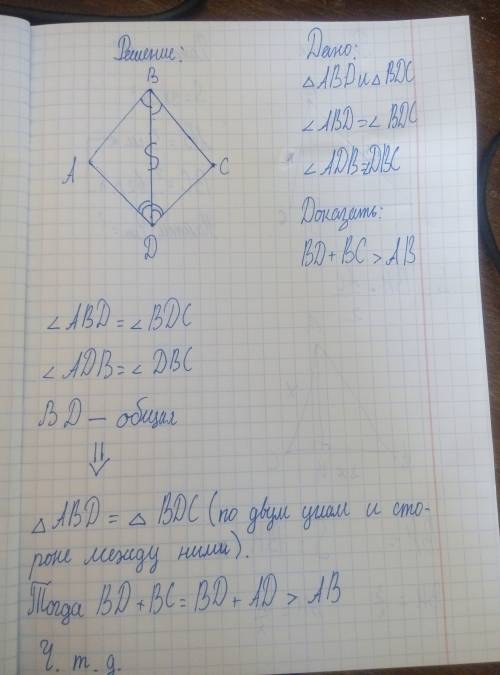 Решение:
B
A
C
D
Дано:
△ABD и △BDC
∠ABD=∠BDC
∠ADB=∠DBC
Доказать:
BD+BC>AB
∠ABD=∠BDC
∠ADB=∠DBC
BD — общая
⇓
△ABD=△BDC (по двум углам и сто-
роне между ними).
Тогда BD+BC=BD+AD>AB
Ч.т.д.